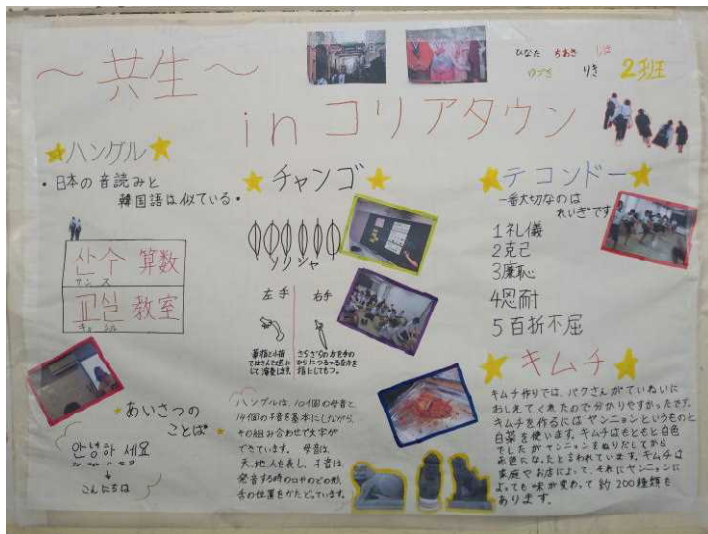 ～共生～
in コリアタウン
ひなた ちあき しほ
ゆづき りき 2班
ハングル
・日本の音読みと
韓国語は似ている・
산수 算数
サンス
교실 教室
キョシル
あいさつの
ことば
안녕하세요
↓
こんにちは
チャンゴ
ソリシャ
左手 右手
ハングルは、10個の母音と
14個の子音を基本にしながら、
その組み合わせで文字が
できています。母音は、
天、地、人を表し、子音は
発音する時の口やのどの形、
舌の位置をかたどっています。
テコンドー
一番大切なのは
れいぎです
1礼儀
2克己
3廉恥
4忍耐
5百折不屈
キムチ
キムチ作りでは、パクさんがていねいに
おしえてくれたので分かりやすかったです。
キムチを作るにはヤンニョンというものと
白菜を使います。キムチはもともと白色
でしたがヤンニョンをぬりだしてから
赤色になったと言われています。キムチは
家庭やお店によって、それにヤンニョンに
よっても味が変わって約200種類も
あります。